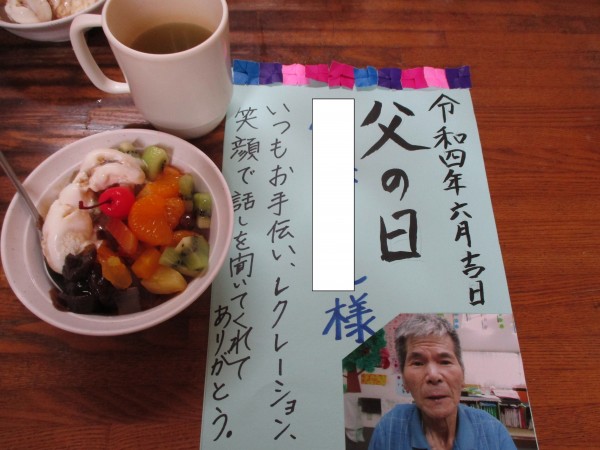 令和四年六月吉日
父の日
様
いつもお手伝い、レクレーション、
笑顔で話しを聞いてくれて
ありがとう。